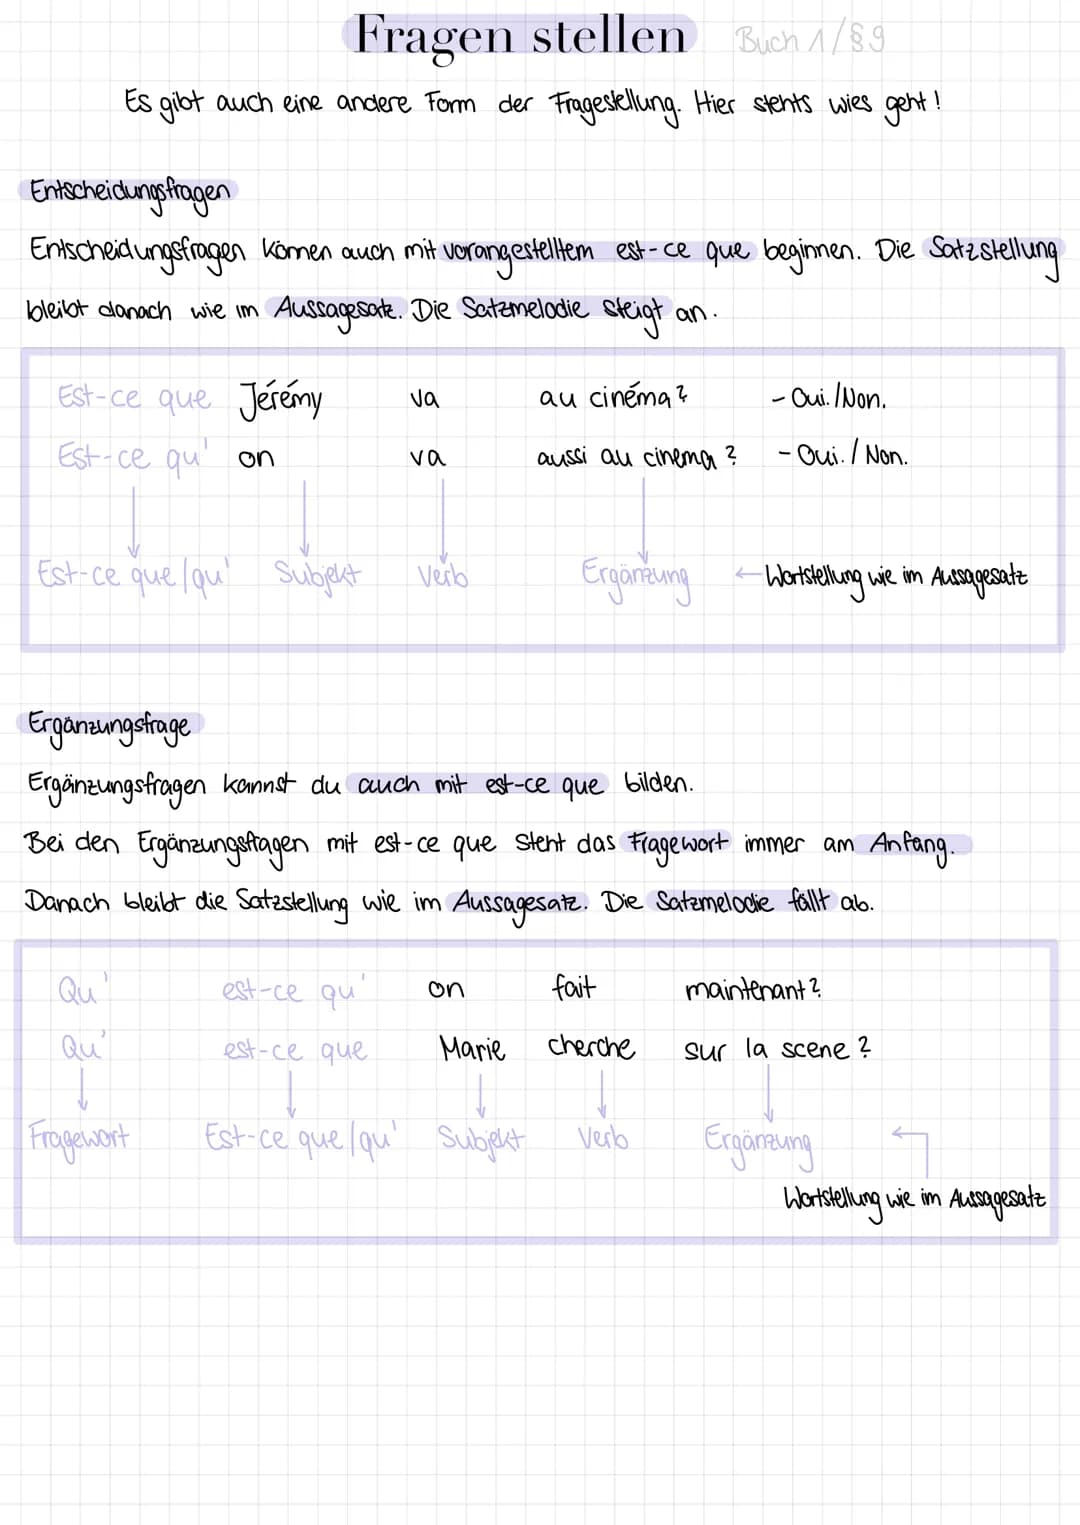 Fragen stellen Buch 1/§9
Es gibt auch eine andere Form der Fragestellung. Hier stehts wies geht!
Entscheidungsfragen
Entscheidungsfragen können auch mit vorangestelltem est-ce que beginnen. Die Satzstellung
bleibt danach wie im Aussagesatz. Die Satzmelodie steigt an.
Est-ce que Jérémy va au cinéma? - Oui./Non.
Est-ce qu' on va aussi au cinema? - Oui./Non.
Est-ce que/qu' Subjekt Verb Ergänzung ← Wortstellung wie im Aussagesatz
Ergänzungsfrage
Ergänzungsfragen kannst du auch mit est-ce que bilden.
Bei den Ergänzungsfragen mit est-ce que steht das Fragewort immer am Anfang.
Danach bleibt die Satzstellung wie im Aussagesatz. Die Satzmelodie fällt ab.
Qu' est-ce qu' on fait maintenant?
Qu' est-ce que Marie cherche sur la scene?
Fragewort Est-ce que/qu' Subjekt Verb Ergänzung
Wortstellung wie im Aussagesatz